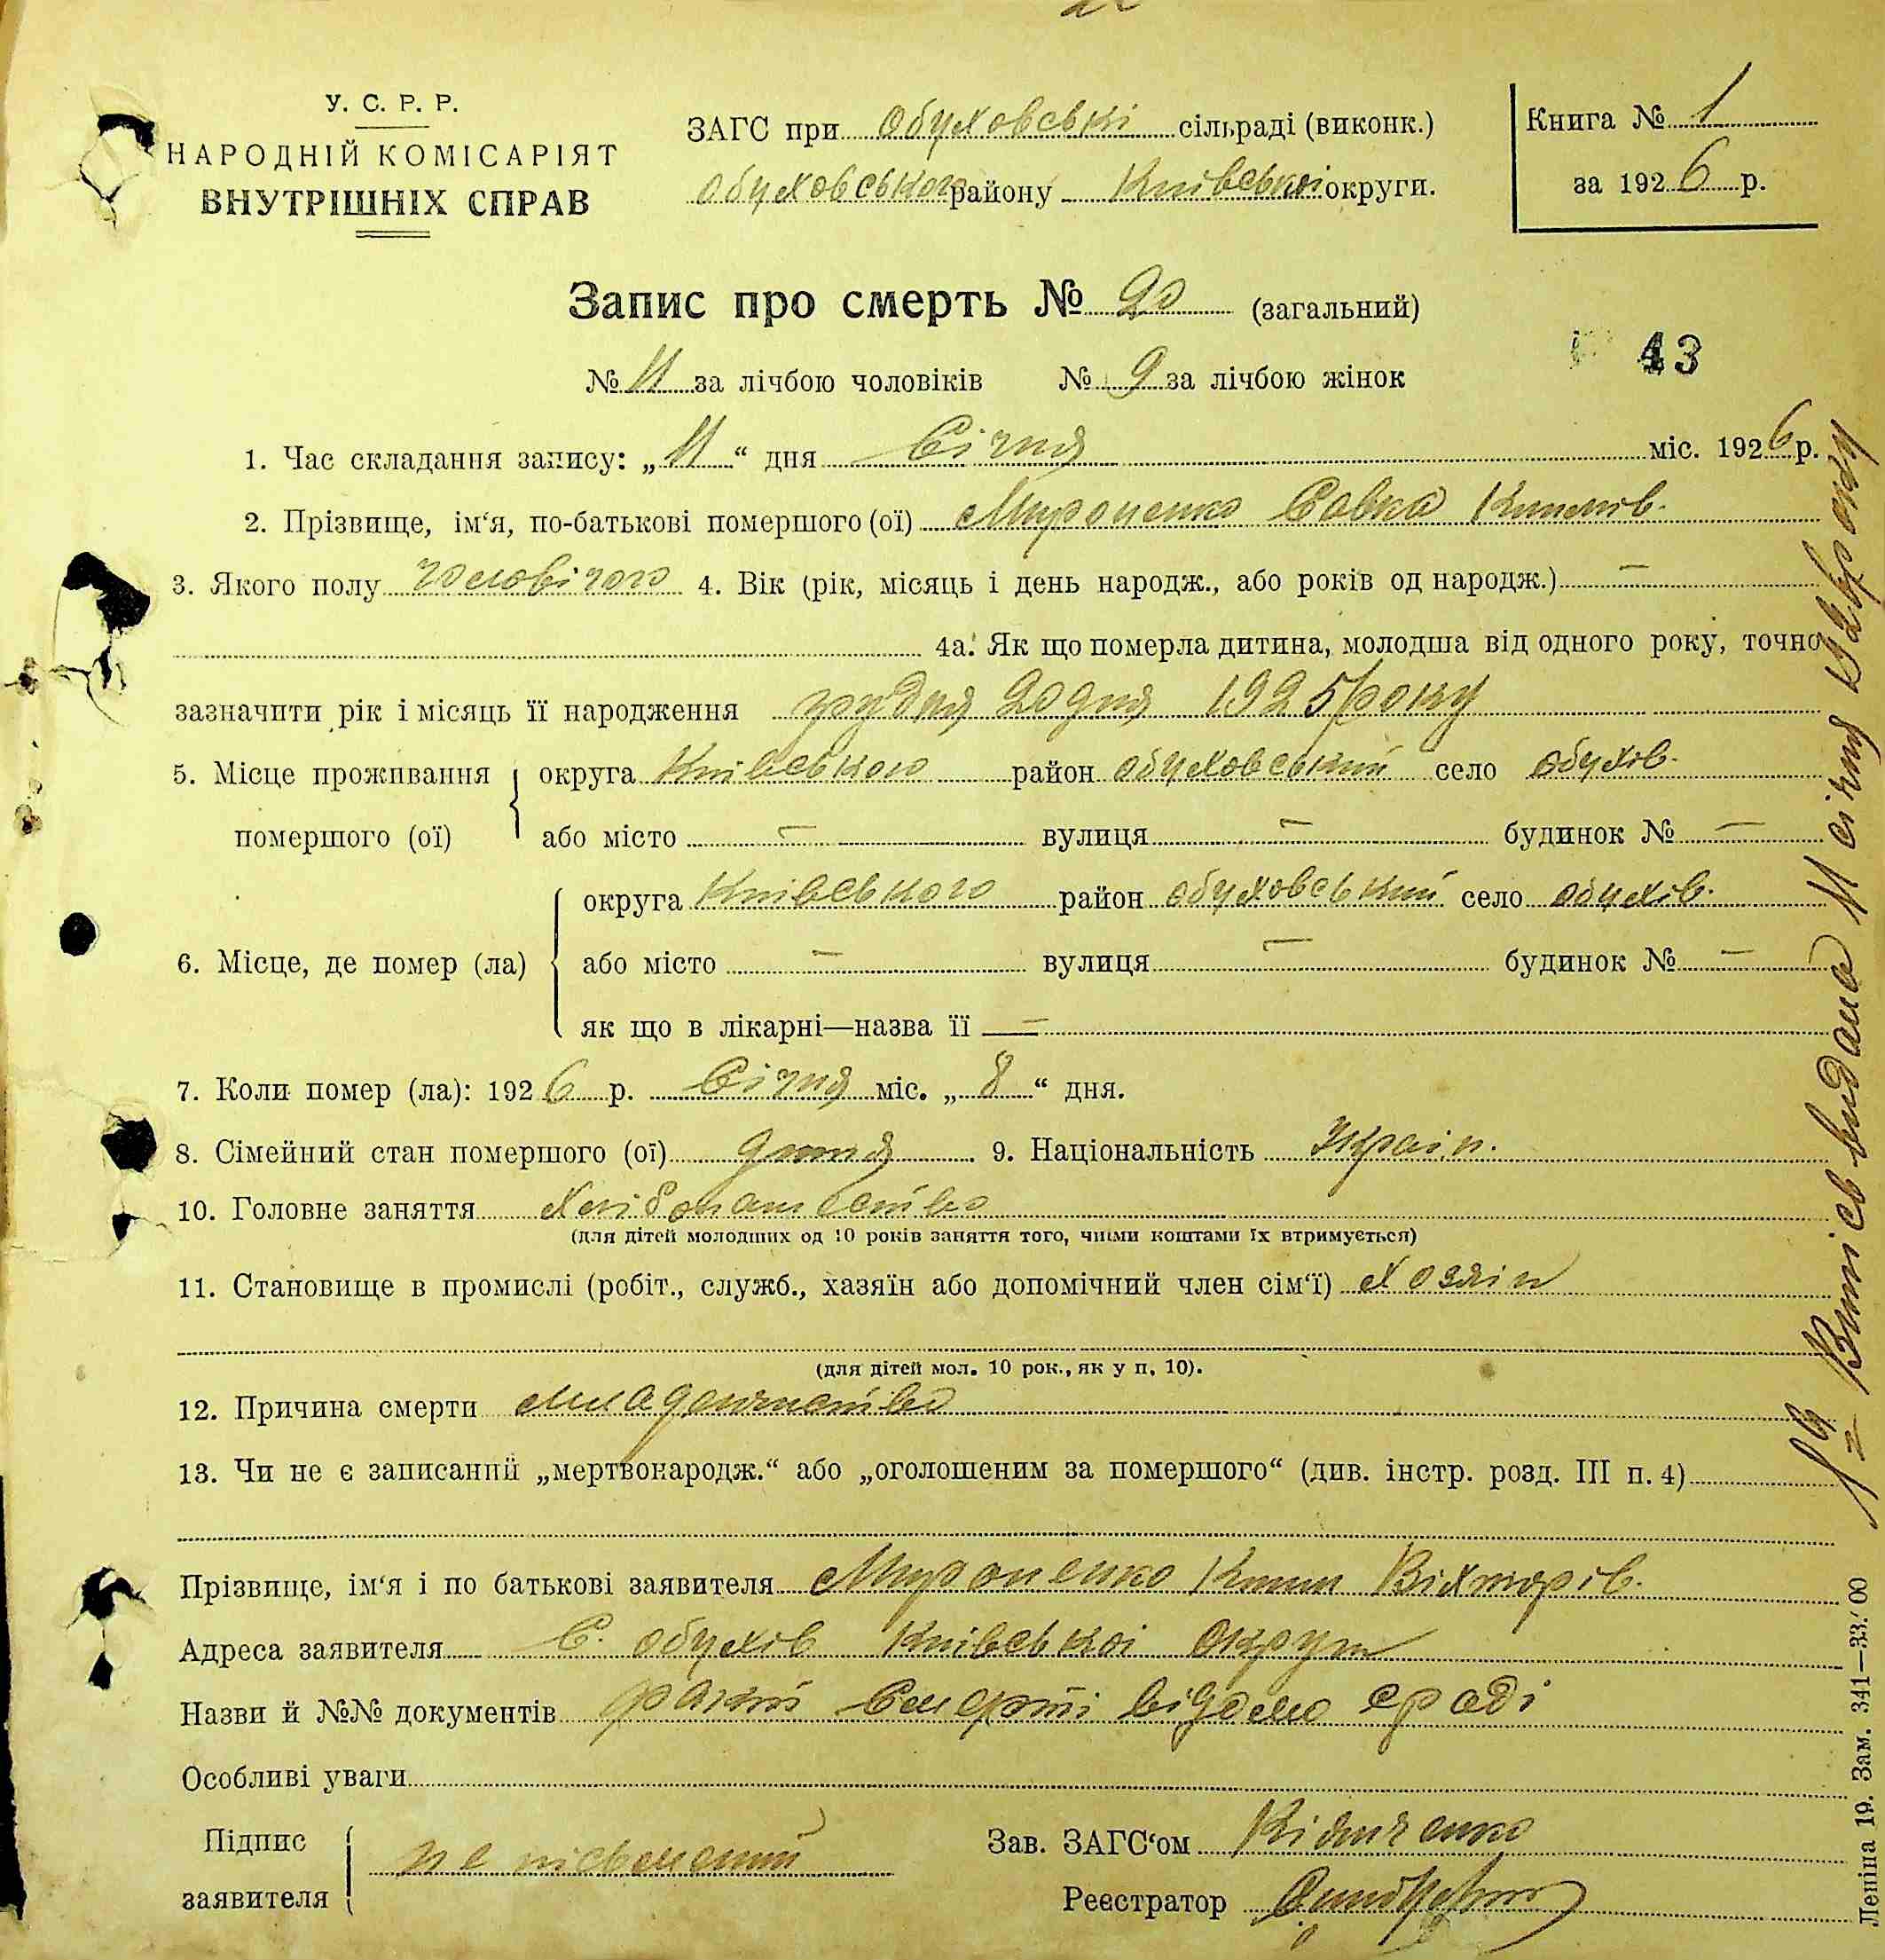 У. С. Р. Р.
НАРОДНІЙ КОМІСАРІЯТ
ВНУТРІШНІХ СПРАВ
ЗАГС при Обуховські сільраді (виконк.)
Обуховського району Київської округи.
Книга № 1
за 1926 р.
Запис про смерть № 20 (загальний)
43
№ 11 за лічбою чоловіків № 9 за лічбою жінок
1. Час складання запису: „11“ дня Січня міс. 1926 р.
2. Прізвище, ім‘я, по-батькові помершого (ої) Мироненко Савка Килимів.
3. Якого полу чоловічого 4. Вік (рік, місяць і день народж., або років од народж.) —
4а. Як що померла дитина, молодша від одного року, точно
зазначити рік і місяць її народження грудня 20 дня 1925 року
5. Місце проживання помершого (ої) округа Київського район Обуховський село Обухів.
або місто — вулиця — будинок № —
6. Місце, де помер (ла) округа Київського район Обуховський село Обухів.
або місто — вулиця — будинок № —
як що в лікарні—назва її —
7. Коли помер (ла): 1926 р. Січня міс. „8“ дня.
8. Сімейний стан помершого (ої) дитя 9. Національність Україн.
10. Головне заняття Хлібопашество
(для дітей молодших од 10 років заняття того, чиїми коштами їх втримується)
11. Становище в промислі (робіт., служб., хазяїн або допомічний член сім‘ї) Хозяїн
(для дітей мол. 10 рок., як у п. 10).
12. Причина смерти Младенчество
13. Чи не є записаний „мертвонародж.“ або „оголошеним за помершого“ (див. інстр. розд. III п. 4)
Прізвище, ім‘я і по батькові заявителя Мироненко Килим Віхторів.
Адреса заявителя С. Обухів Київської округи
Назви й №№ документів факт смерті відомо сраді
Особливі уваги
Підпис заявителя не письменний
Зав. ЗАГС‘ом
Реєстратор
Випись видана 11 січня 1926 року
Леніна 19. Зам. 341—33.